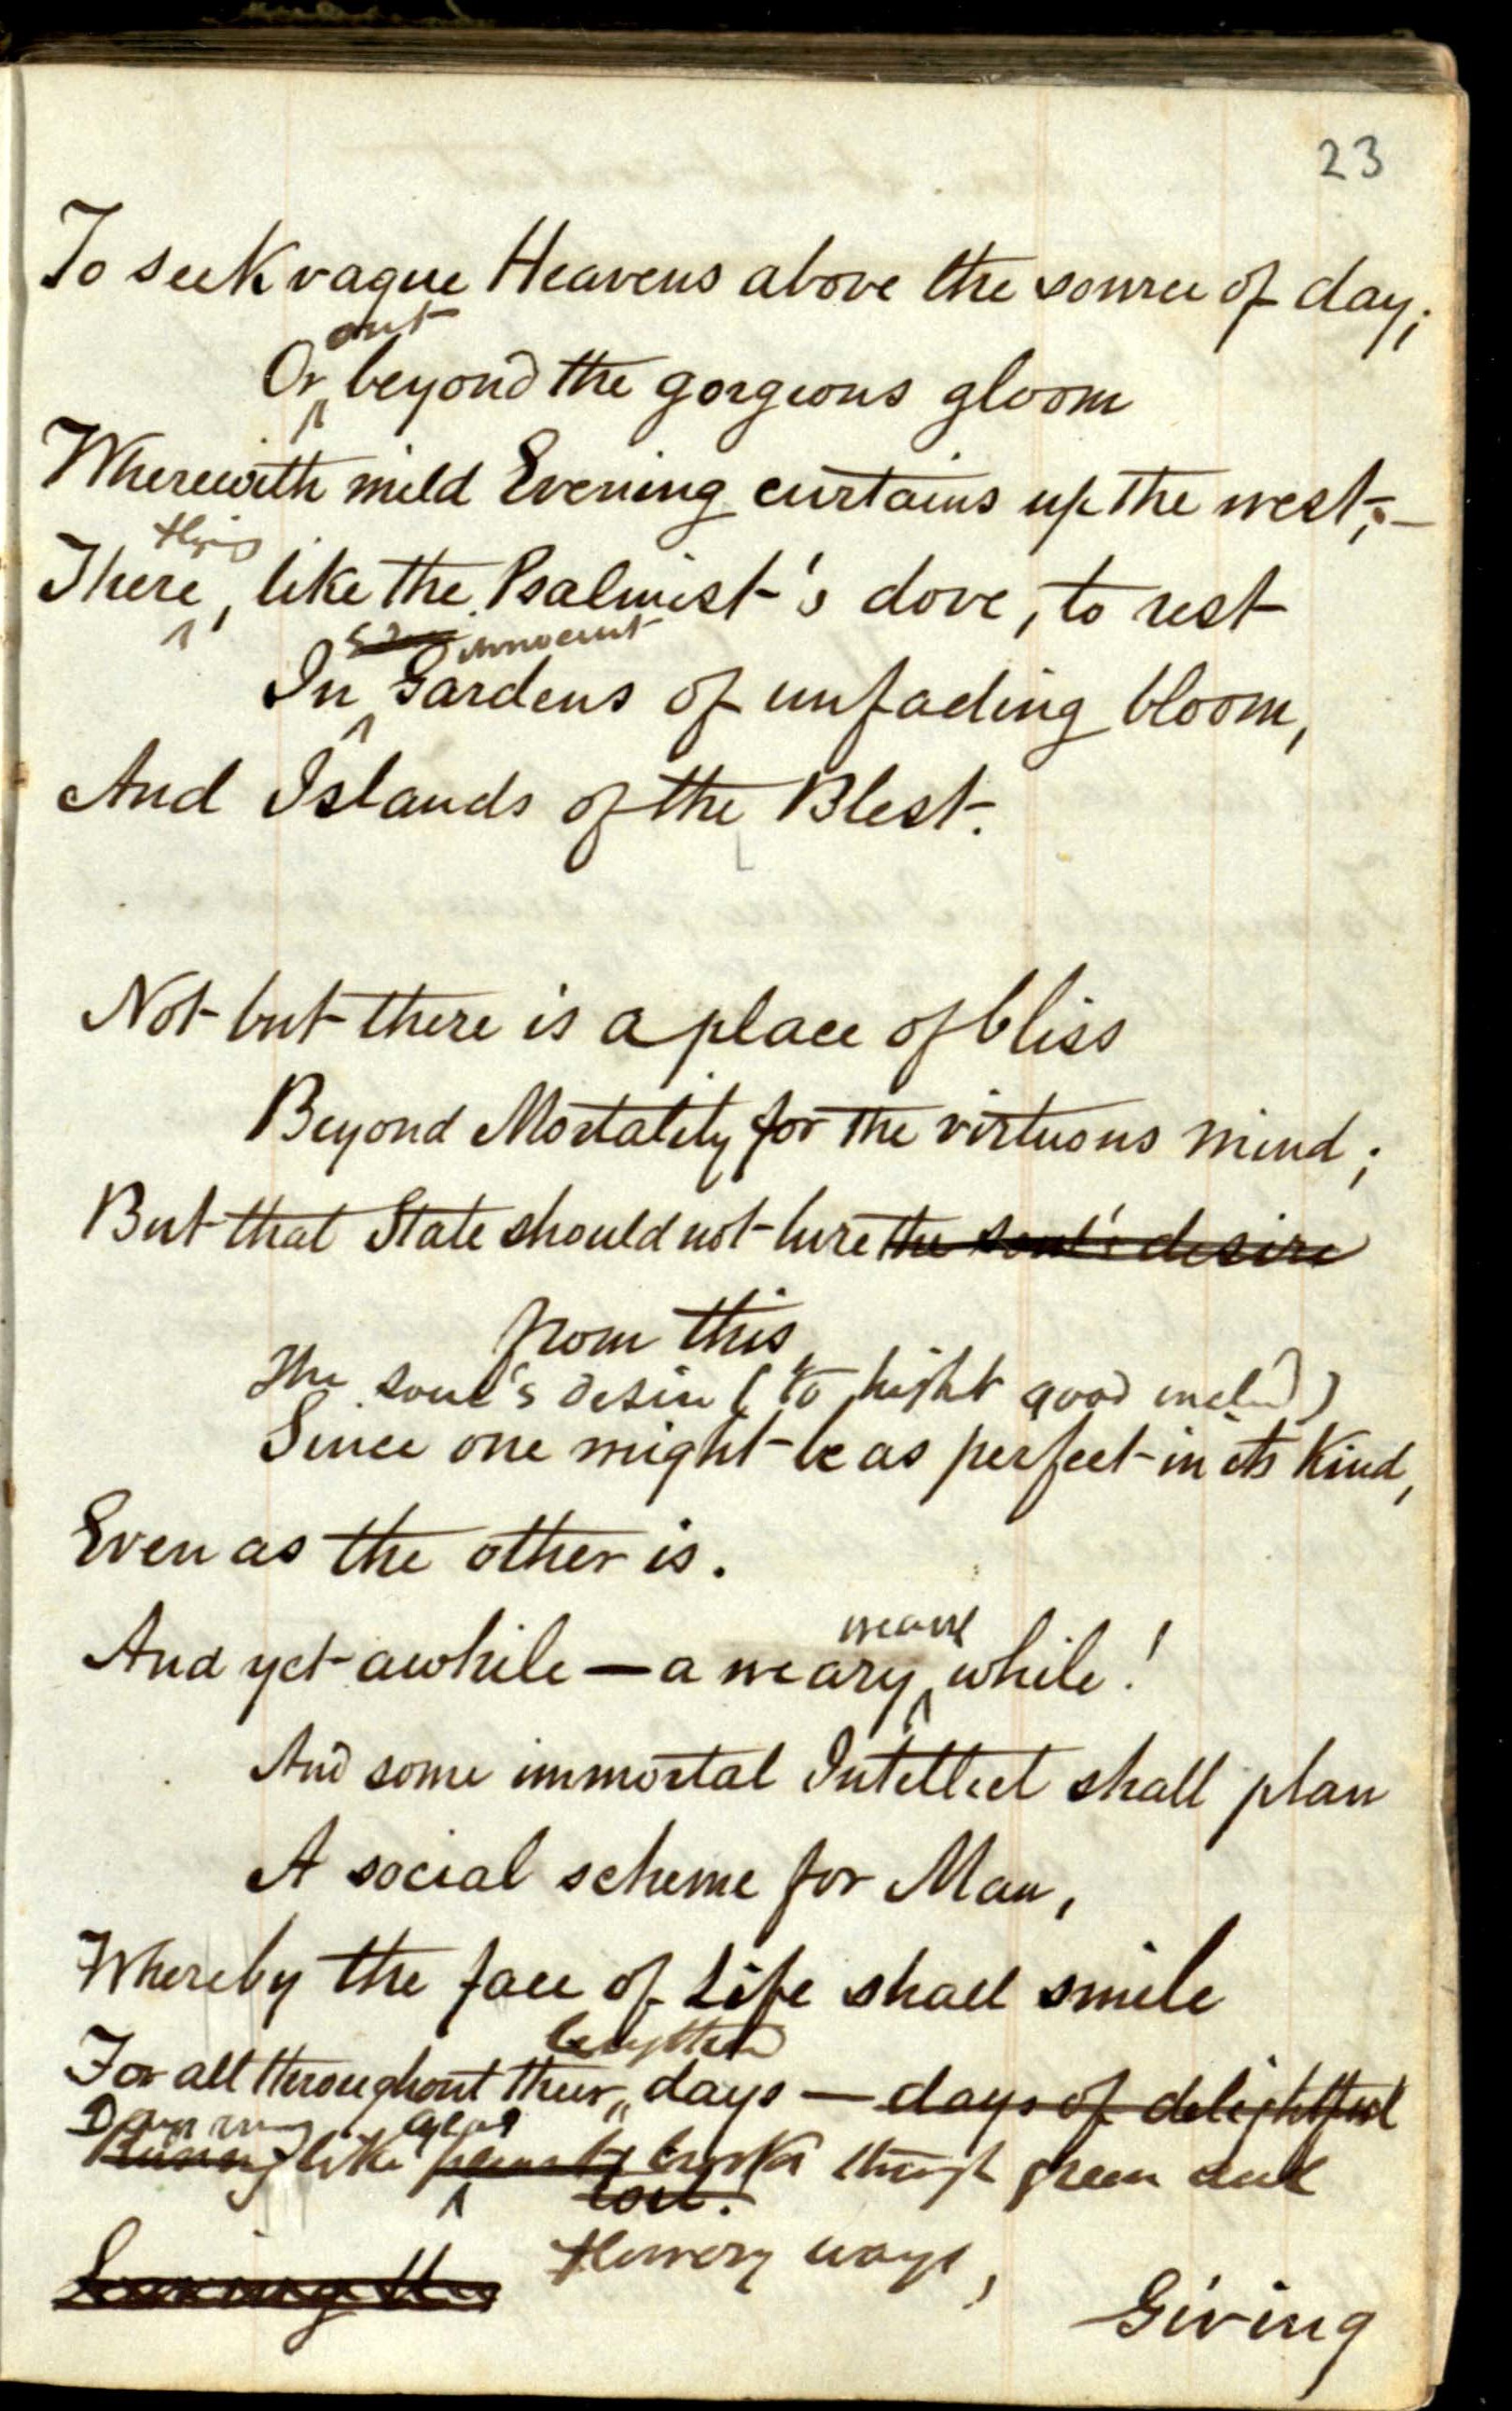 23
To seek vague Heavens above the source of day;
out
Or beyond the gorgeous gloom
Wherewith mild Evening curtains up the west;—
flying
There, like the Psalmist's dove, to rest
innocent
In Gardens of unfading bloom,
And Islands of the Blest.
Not but there is a place of bliss
Beyond Mortality for the virtuous mind;
But that State should not lure the soul's desire
from this,
The soul's desire (to hight good )
Since one might be as perfect in its Kind,
Even as the other is.
And yet awhile — a weary while!
And some immortal Intellect shall plan
A social scheme for Man,
Whereby the face of Life shall smile
lengthened
For all throughout their days — days of delightful
Running like brooks through green and
toil.
flowery ways,
Giving